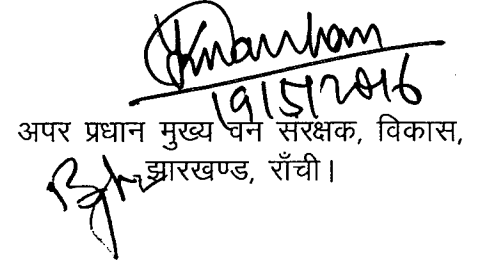 19/5/2016
अपर प्रधान मुख्य वन संरक्षक, विकास,
झारखण्ड, राँची।